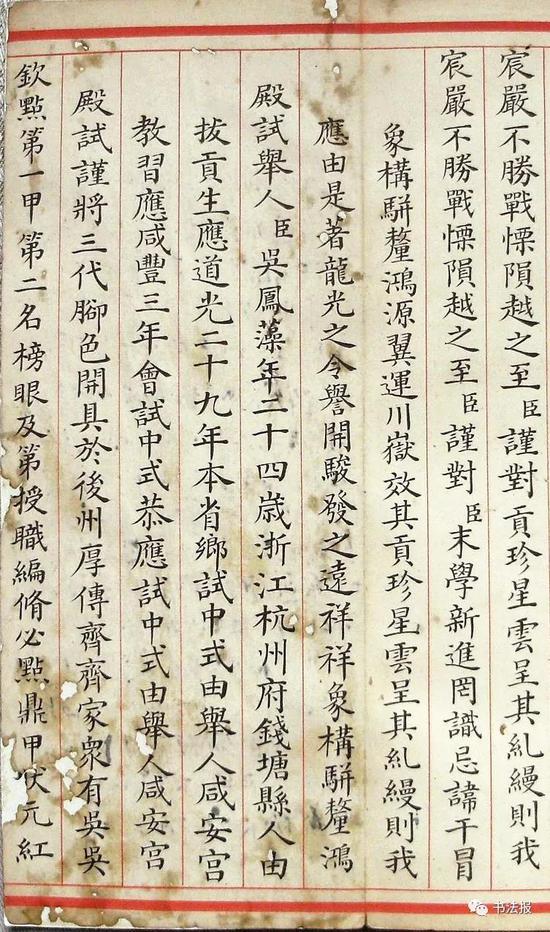 宸嚴不勝戰慄隕越之至臣謹對貢珍星雲呈其糺縵則我
宸嚴不勝戰慄隕越之至臣謹對臣末學新進罔識忌諱干冒
象構駢釐鴻源翼運川嶽效其貢珍星雲呈其糺縵則我
應由是著龍光之令譽開駿發之遠祥祥象構駢釐鴻
殿試舉人臣吳鳳藻年二十四歲浙江杭州府錢塘縣人由
拔貢生應道光二十九年本省鄉試中式由舉人咸安宮
教習應咸豐三年會試中式恭應試中式由舉人咸安宮
殿試謹將三代腳色開具於後州厚傳齊齊家眾有吳吳
欽點第一甲第二名榜眼及第授職編脩必點鼎甲伏元紅
书法报